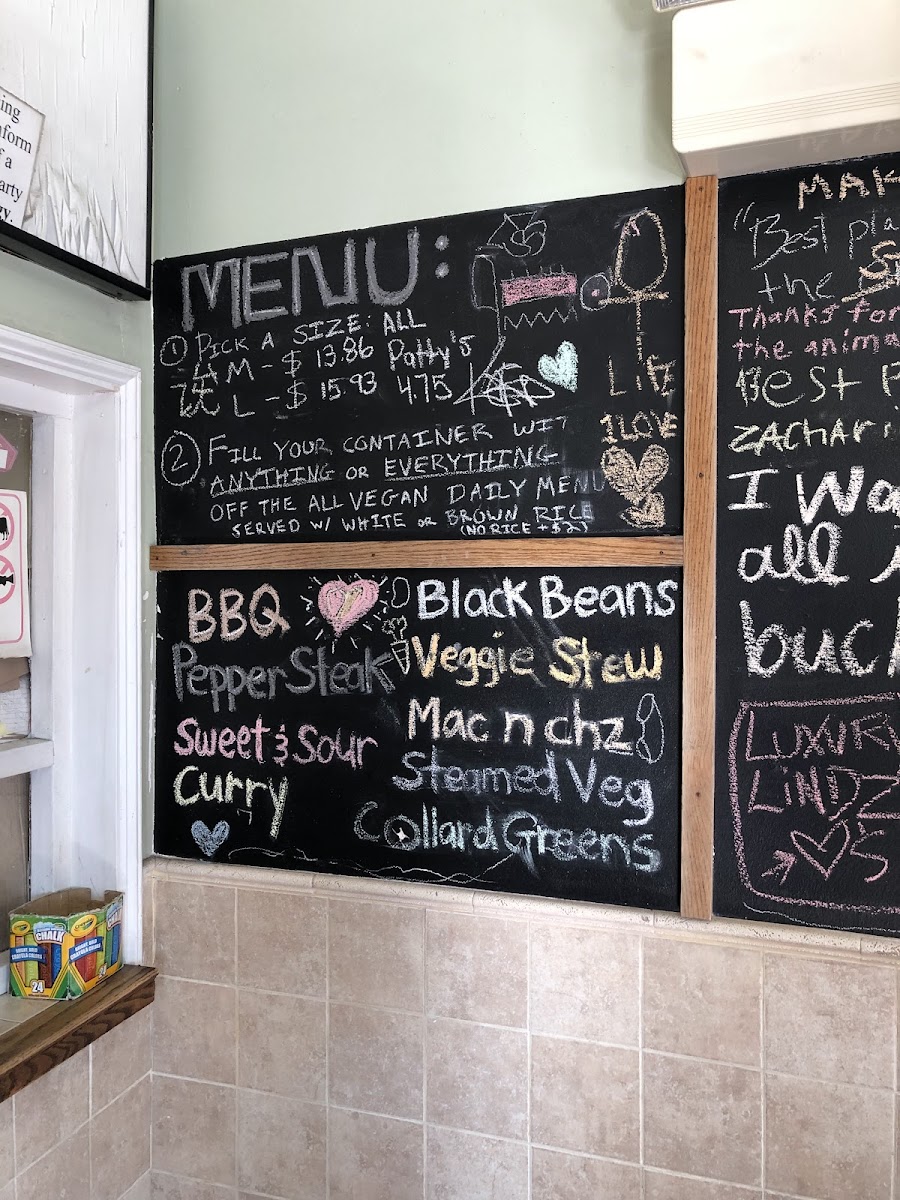 ing
nform
f a
arty
gy.
MENU:
① PICK A SIZE: ALL
M - $ 13.86 Patty's
L - $ 15.93 4.75
② FILL YOUR CONTAINER WIT
ANYTHING OR EVERYTHING
OFF THE ALL VEGAN DAILY MENU
SERVED W/ WHITE OR BROWN RICE
(NO RICE + $2)
LIFE
1LOVE
BBQ
Pepper Steak
Sweet & Sour
Curry
Black Beans
Veggie Stew
Mac n chz
Steamed Veg
Collard Greens
MAK
"Best pla
the
Thanks for
the anima
BEST P
ZACHARI
I Wa
all
buck
LUXURY
LiNDZ
'S
Crayola
CHALK
24